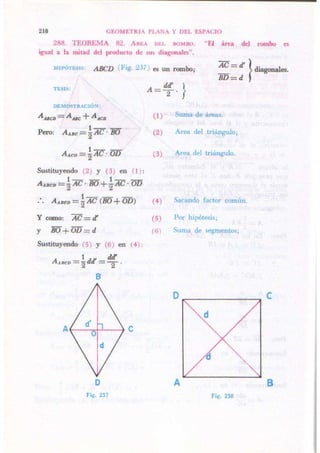 218 GEOMETRIA PLANA Y DEL ESPACIO
288. TEOREMA 82. AREA DEL ROMBO. "El área del rombo es
igual a la mitad del producto de sus diagonales".
HIPÓTESIS: ABCD (Fig. 257) es un rombo; AC = d' } diagonales.
BD = d
TESIS: A = dd'/2 .
DEMOSTRACIÓN:
A_ABCD = A_ABC + A_ACD (1) Suma de áreas.
Pero: A_ABC = 1/2 AC · BO (2) Area del triángulo;
A_ACD = 1/2 AC · OD (3) Area del triángulo.
Sustituyendo (2) y (3) en (1):
A_ABCD = 1/2 AC · BO + 1/2 AC · OD
∴ A_ABCD = 1/2 AC (BO + OD) (4) Sacando factor común.
Y como: AC = d' (5) Por hipótesis;
y BO + OD = d (6) Suma de segmentos;
Sustituyendo (5) y (6) en (4):
A_ABCD = 1/2 dd' = dd'/2 .
B
D C
d
d'
A O C
d
d
D
A B
Fig. 257 Fig. 258